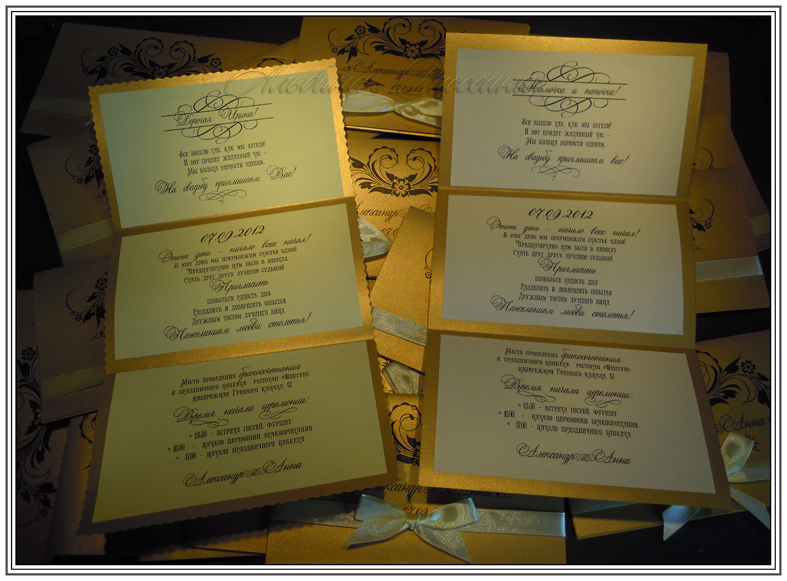 Дорогая Ирина!
Все вышло так, как мы хотели!
И вот придет желанный час -
Мы кольца верности оденем.
На свадьбу приглашаем Вас!
07.09.2012
Этот день - начало всех начал!
В этот день мы приумножим счастье вдвое!
Предначертано нам было в небесах
Стать друг другу лучшею судьбой!
Пригласить
позвольте радость два
Разделить и довершить событья
Дружным тостом лучшего вина,
Пожеланием любви столетья!
Место проведения бракосочетания
и праздничного банкета
набережная Гребного канала, 12
Время начала церемонии:
* 15:30 - встреча гостей, фуршет
* 16:00 - начало церемонии бракосочетания
* 17:00 - начало праздничного банкета
Александр Анна
Мамочка и папочка!
Все вышло так, как мы хотели!
И вот придет желанный час -
Мы кольца верности оденем.
На свадьбу приглашаем Вас!
07.09.2012
Этот день - начало всех начал!
В этот день мы приумножим счастье вдвое!
Предначертано нам было в небесах
Стать друг другу лучшею судьбой!
Пригласить
позвольте радость два
Разделить и довершить событья
Дружным тостом лучшего вина
Пожеланием любви столетья!
Место проведения бракосочетания
и праздничного банкета
набережная Гребного канала, 12
Время начала церемонии:
* 15:30 - встреча гостей, фуршет
* 16:00 - начало церемонии бракосочетания
* 17:00 - начало праздничного банкета
Александр Анна
Александр
Анна